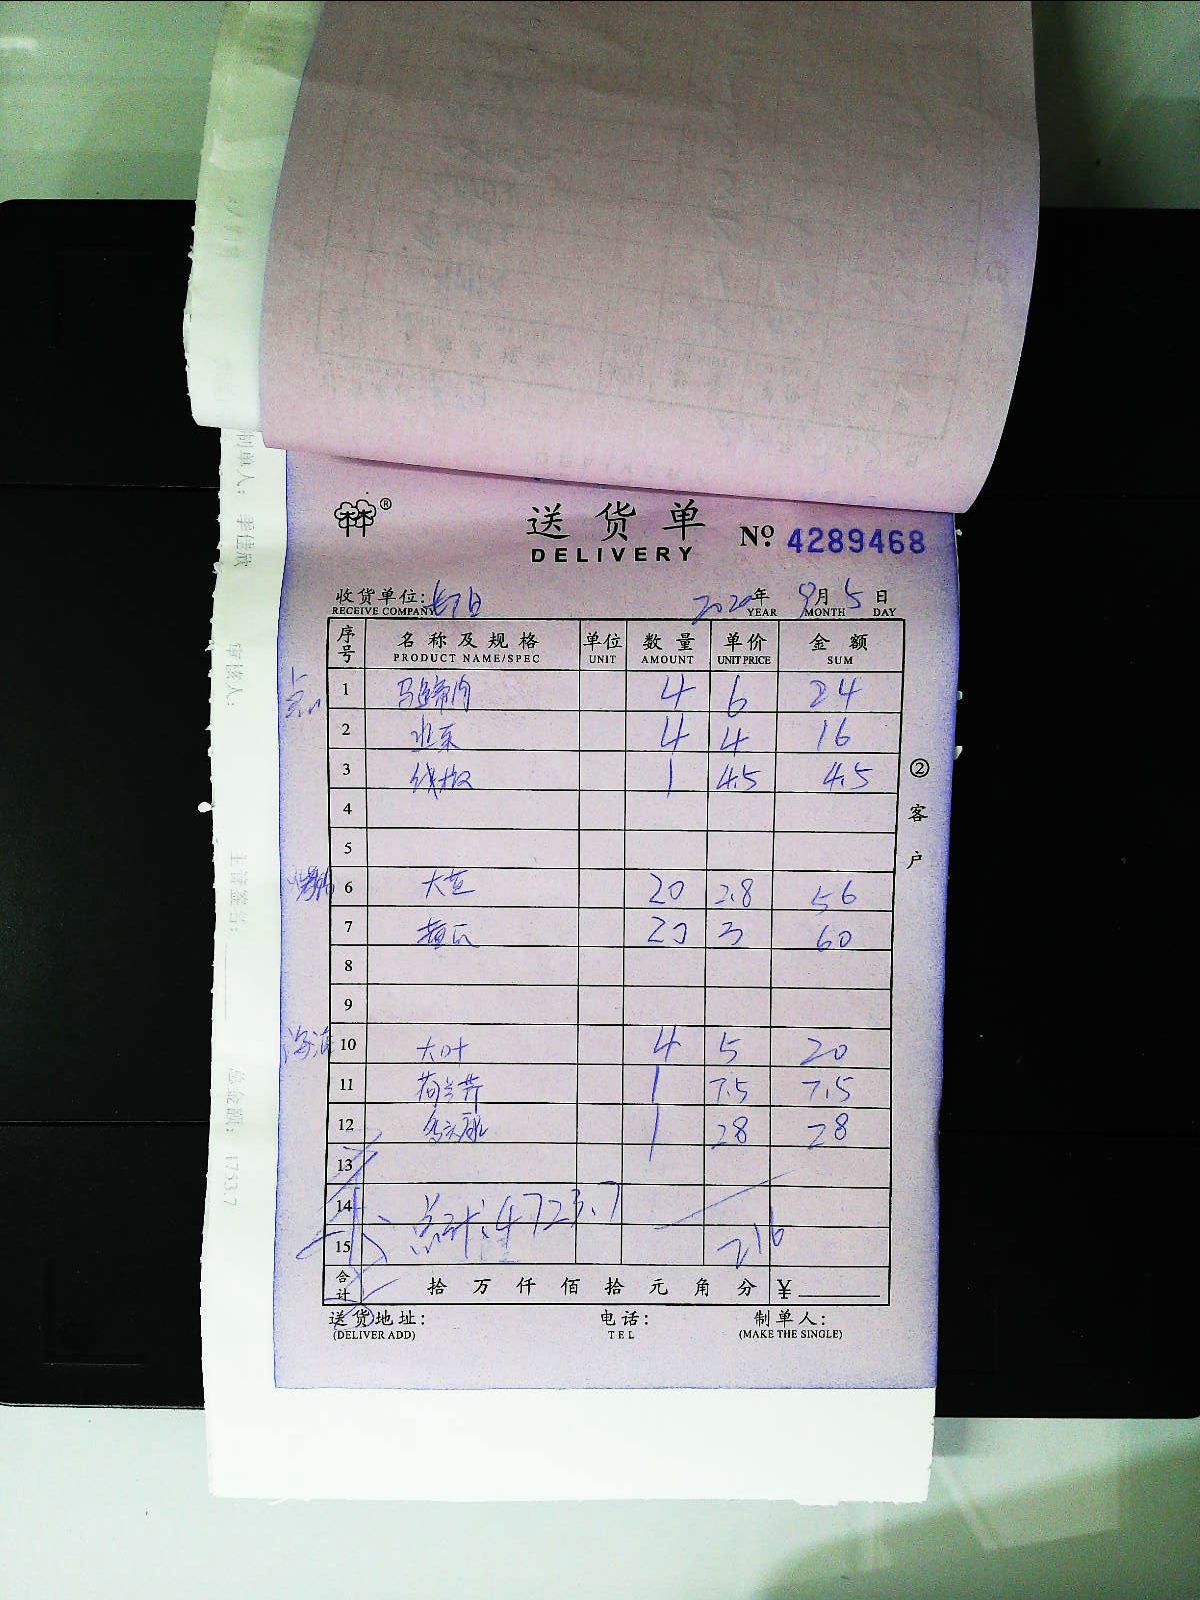 送货单 Nº 4289468
DELIVERY
收货单位: 2020年 9月 5日
RECEIVE COMPANY YEAR MONTH DAY
序号 名称及规格 单位 数量 单价 金额
PRODUCT NAME/SPEC UNIT AMOUNT UNIT PRICE SUM
1 马蹄肉 4 6 24
2 4 4 16
3 线椒 1 4.5 4.5
4
5
6 大豆 20 2.8 56
7 黄瓜 20 3 60
8
9
10 大叶 4 5 20
11 荷兰芹 1 7.5 7.5
12 1 28 28
13
14 总计:4723.7
15 216
合计 拾 万 仟 佰 拾 元 角 分 ¥
送货地址: 电话: 制单人:
(DELIVER ADD) TEL (MAKE THE SINGLE)
②客户
制单人: 李佳欣 审核人: 主管签名: 总金额: 1753.7